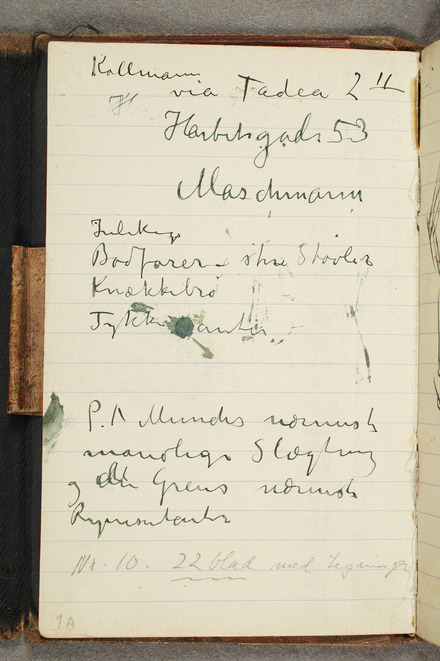 Kollmann
H via Tadea 2 II
Habitsgade 53
Maschmann
Julekag
Bodforer - store Støvler
Knækkebrø
Tykke
P. A Munchs nærmeste
mandlige Slægtning
og den Grens nærmeste
Repræsentanter
Nr. 10. 22 blad med tegninger
1A